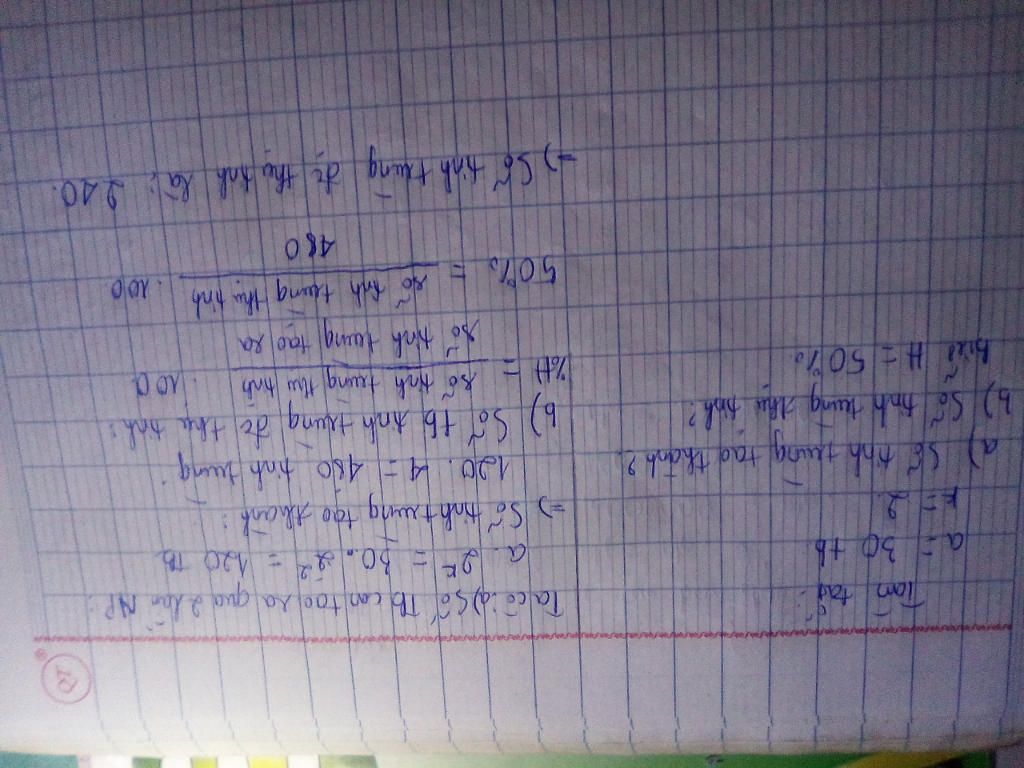 Tóm tắt:
a = 30 tb
k = 2
a) Số tinh trùng tạo thành?
b) Số tinh trùng thụ tinh?
biết H = 50%
Ta có: a) Số Tb con tạo ra qua 2 lần NP:
a . 2^k = 30 . 2² = 120 Tb
=> Số tinh trùng tạo thành:
120 . 4 = 480 tinh trùng
b) Số tb tinh trùng đc thụ tinh:
%H = số tinh trùng thụ tinh . 100
số tinh trùng tạo ra
50% = số tinh trùng thụ tinh . 100
480
=> Số tinh trùng đc thụ tinh là: 240.